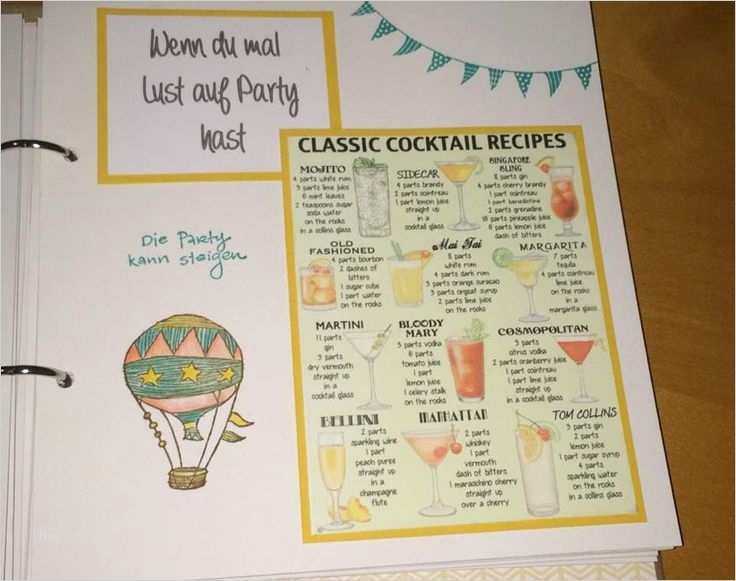 Wenn du mal
Lust auf Party
hast
CLASSIC COCKTAIL RECIPES
MOJITO
4 parts white rum
3 parts lime juice
6 mint leaves
2 teaspoons sugar
soda water
on the rocks
in a collins glass
SIDECAR
4 parts brandy
2 parts cointreau
1 part lemon juice
straight up
in a
cocktail glass
SINGAPORE
SLING
8 parts gin
4 parts cherry brandy
1 part cointreau
1 part benedictine
2 parts grenadine
18 parts pineapple juice
6 parts lemon juice
dash of bitters
Die Party
kann steigen
OLD
FASHIONED
4 parts bourbon
2 dashes of
bitters
1 sugar cube
1 part water
on the rocks
Mai Tai
8 parts
white rum
4 parts dark rum
3 parts orange curacao
3 parts orgeat syrup
2 parts lime juice
on the rocks
MARGARITA
7 parts
tequila
4 parts cointreau
lime juice
on the rocks
in a
margarita glass
MARTINI
11 parts
gin
3 parts
dry vermouth
straight up
in a
cocktail glass
BLOODY
MARY
3 parts vodka
6 parts
tomato juice
1 part
lemon juice
1 celery stalk
on the rocks
COSMOPOLITAN
3 parts
citrus vodka
2 parts cranberry juice
1 part cointreau
1 part lime juice
straight up
in a
cocktail glass
BELLINI
2 parts
sparkling wine
1 part
peach puree
straight up
in a
champagne
flute
MANHATTAN
2 parts
whiskey
1 part
vermouth
dash of bitters
1 maraschino cherry
straight up
over a cherry
TOM COLLINS
3 parts gin
2 parts
lemon juice
1 part sugar syrup
4 parts
sparkling water
on the rocks
in a collins glass